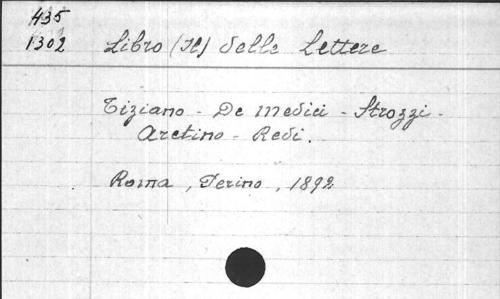 435
1302 Libro (Il) delle Lettere
Tiziano - De Medici - Strozzi -
Aretino - Redi.
Roma, Perino, 1892